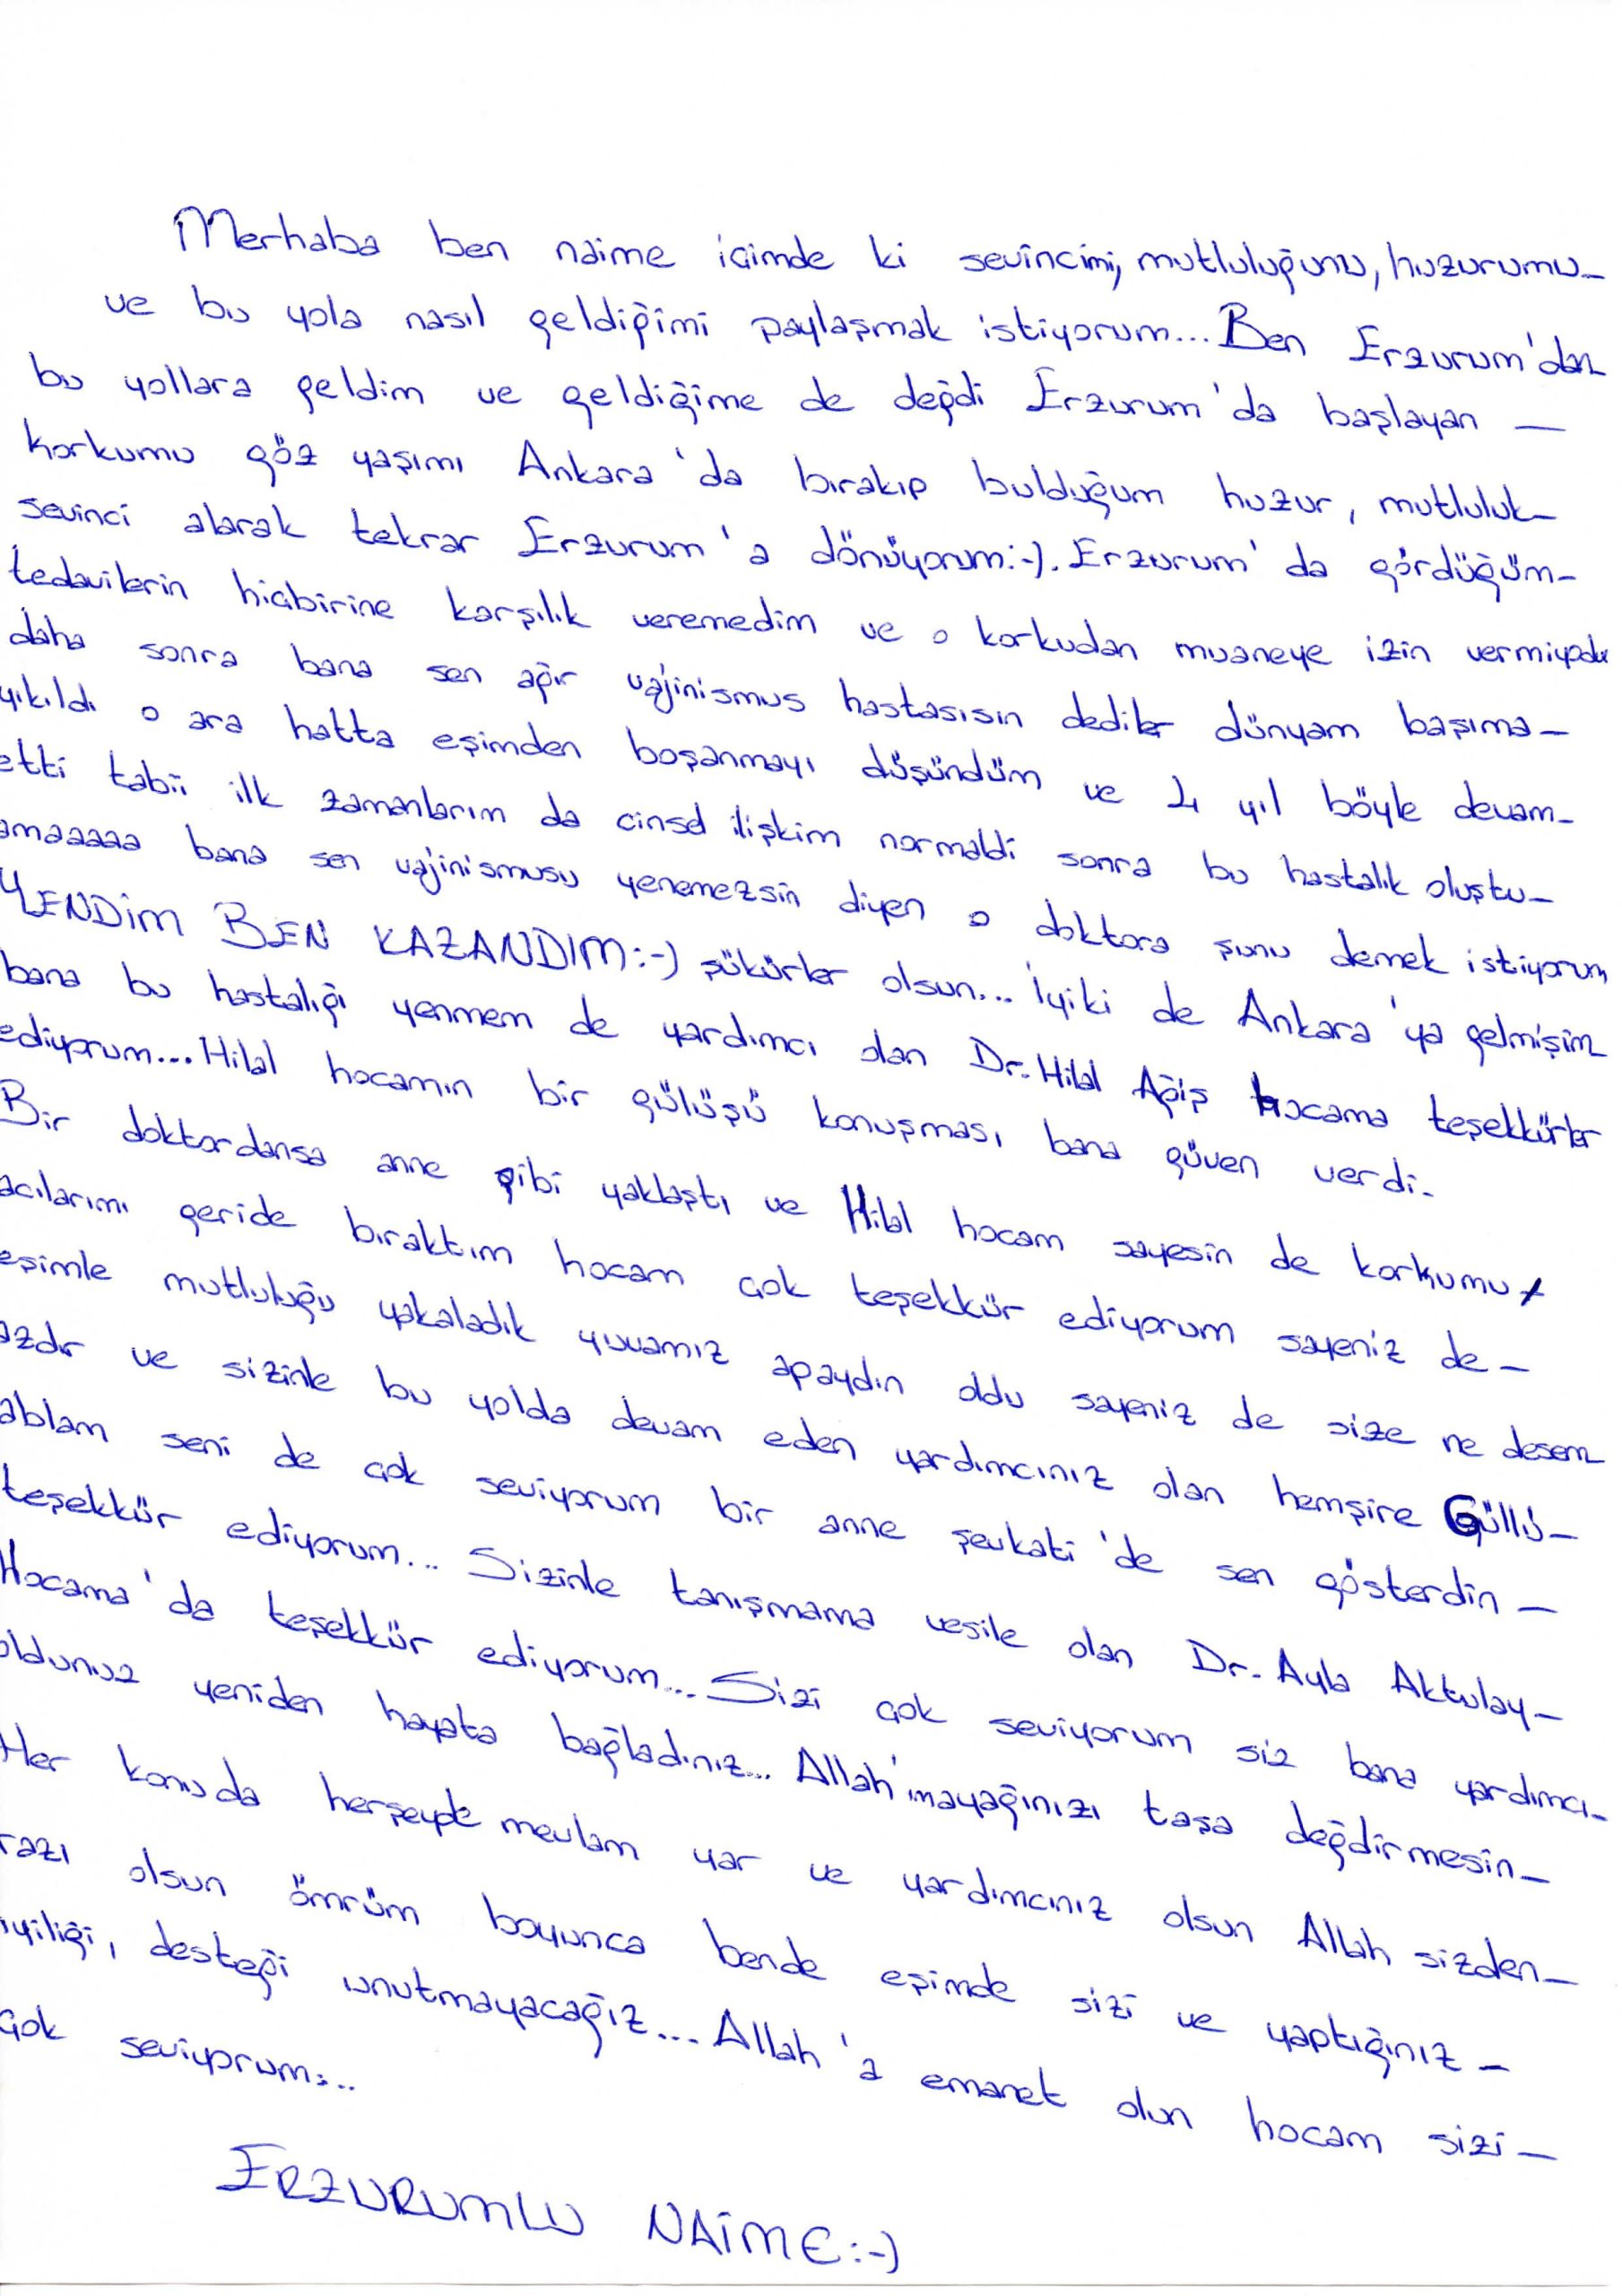 Merhaba ben naime içimde ki sevincimi, mutluluğumu, huzurumu_
ve bu yola nasıl geldiğimi paylaşmak istiyorum... Ben Erzurum'dan
bu yollara geldim ve geldiğime de değdi Erzurum'da başlayan _
korkumu göz yaşımı Ankara'da bırakıp bulduğum huzur, mutluluk_
sevinci alarak tekrar Erzurum'a dönüyorum:-). Erzurum'da gördüğüm_
tedavilerin hiçbirine karşılık veremedim ve o korkudan muaneye izin vermiyodu
daha sonra bana sen ağır vajinismus hastasısın dediler dünyam başıma_
yıkıldı o ara hatta eşimden boşanmayı düşündüm ve 4 yıl böyle devam_
etti tabii ilk zamanlarım da cinsel ilişkim normaldi sonra bu hastalık oluştu_
amaaaaa bana sen vajinismusu yenemezsin diyen o doktora şunu demek istiyorum
YENDİM BEN KAZANDIM:-) şükürler olsun... İyiki de Ankara'ya gelmişim
bana bu hastalığı yenmem de yardımcı olan Dr. Hilal Ağiş hocama teşekkürler
ediyorum... Hilal hocamın bir gülüşü konuşması bana güven verdi.
Bir doktordansa anne gibi yaklaştı ve Hilal hocam sayesin de korkumu
acılarımı geride bıraktım hocam çok teşekkür ediyorum sayeniz de _
eşimle mutluluğu yakaladık yuvamız apaydın oldu sayeniz de size ne desem
azdır ve sizinle bu yolda devam eden yardımcınız olan hemşire Güllü_
ablam seni de çok seviyorum bir anne şevkati'de sen gösterdin _
teşekkür ediyorum... Sizinle tanışmama vesile olan Dr. Ayla Aktulay_
Hocama'da teşekkür ediyorum... Sizi çok seviyorum siz bana yardımcı_
oldunuz yeniden hayata bağladınız... Allah'ımayağınızı taşa değdirmesin_
Her konuda herşeyde mevlam yar ve yardımcınız olsun Allah sizden_
razı olsun ömrüm boyunca bende eşimde sizi ve yaptığınız _
iyiliği, desteği unutmayacağız... Allah'a emanet olun hocam sizi _
çok seviyorum...
ERZURUMLU NAİME:-)